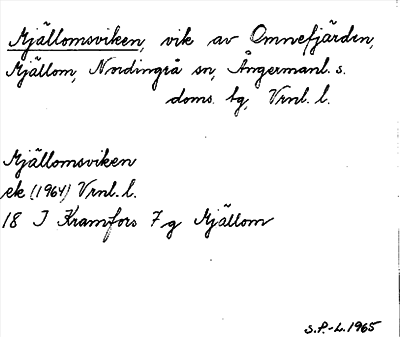 Mjällomsviken, vik av Omnefjärden,
Mjällom, Nordingrå sn, Ångermanl. s.
doms. hg, Vrnl. l.
Mjällomsviken
ek (1964) Vrnl. l.
18 I Kramfors 7 g Mjällom
S.P.-L. 1965